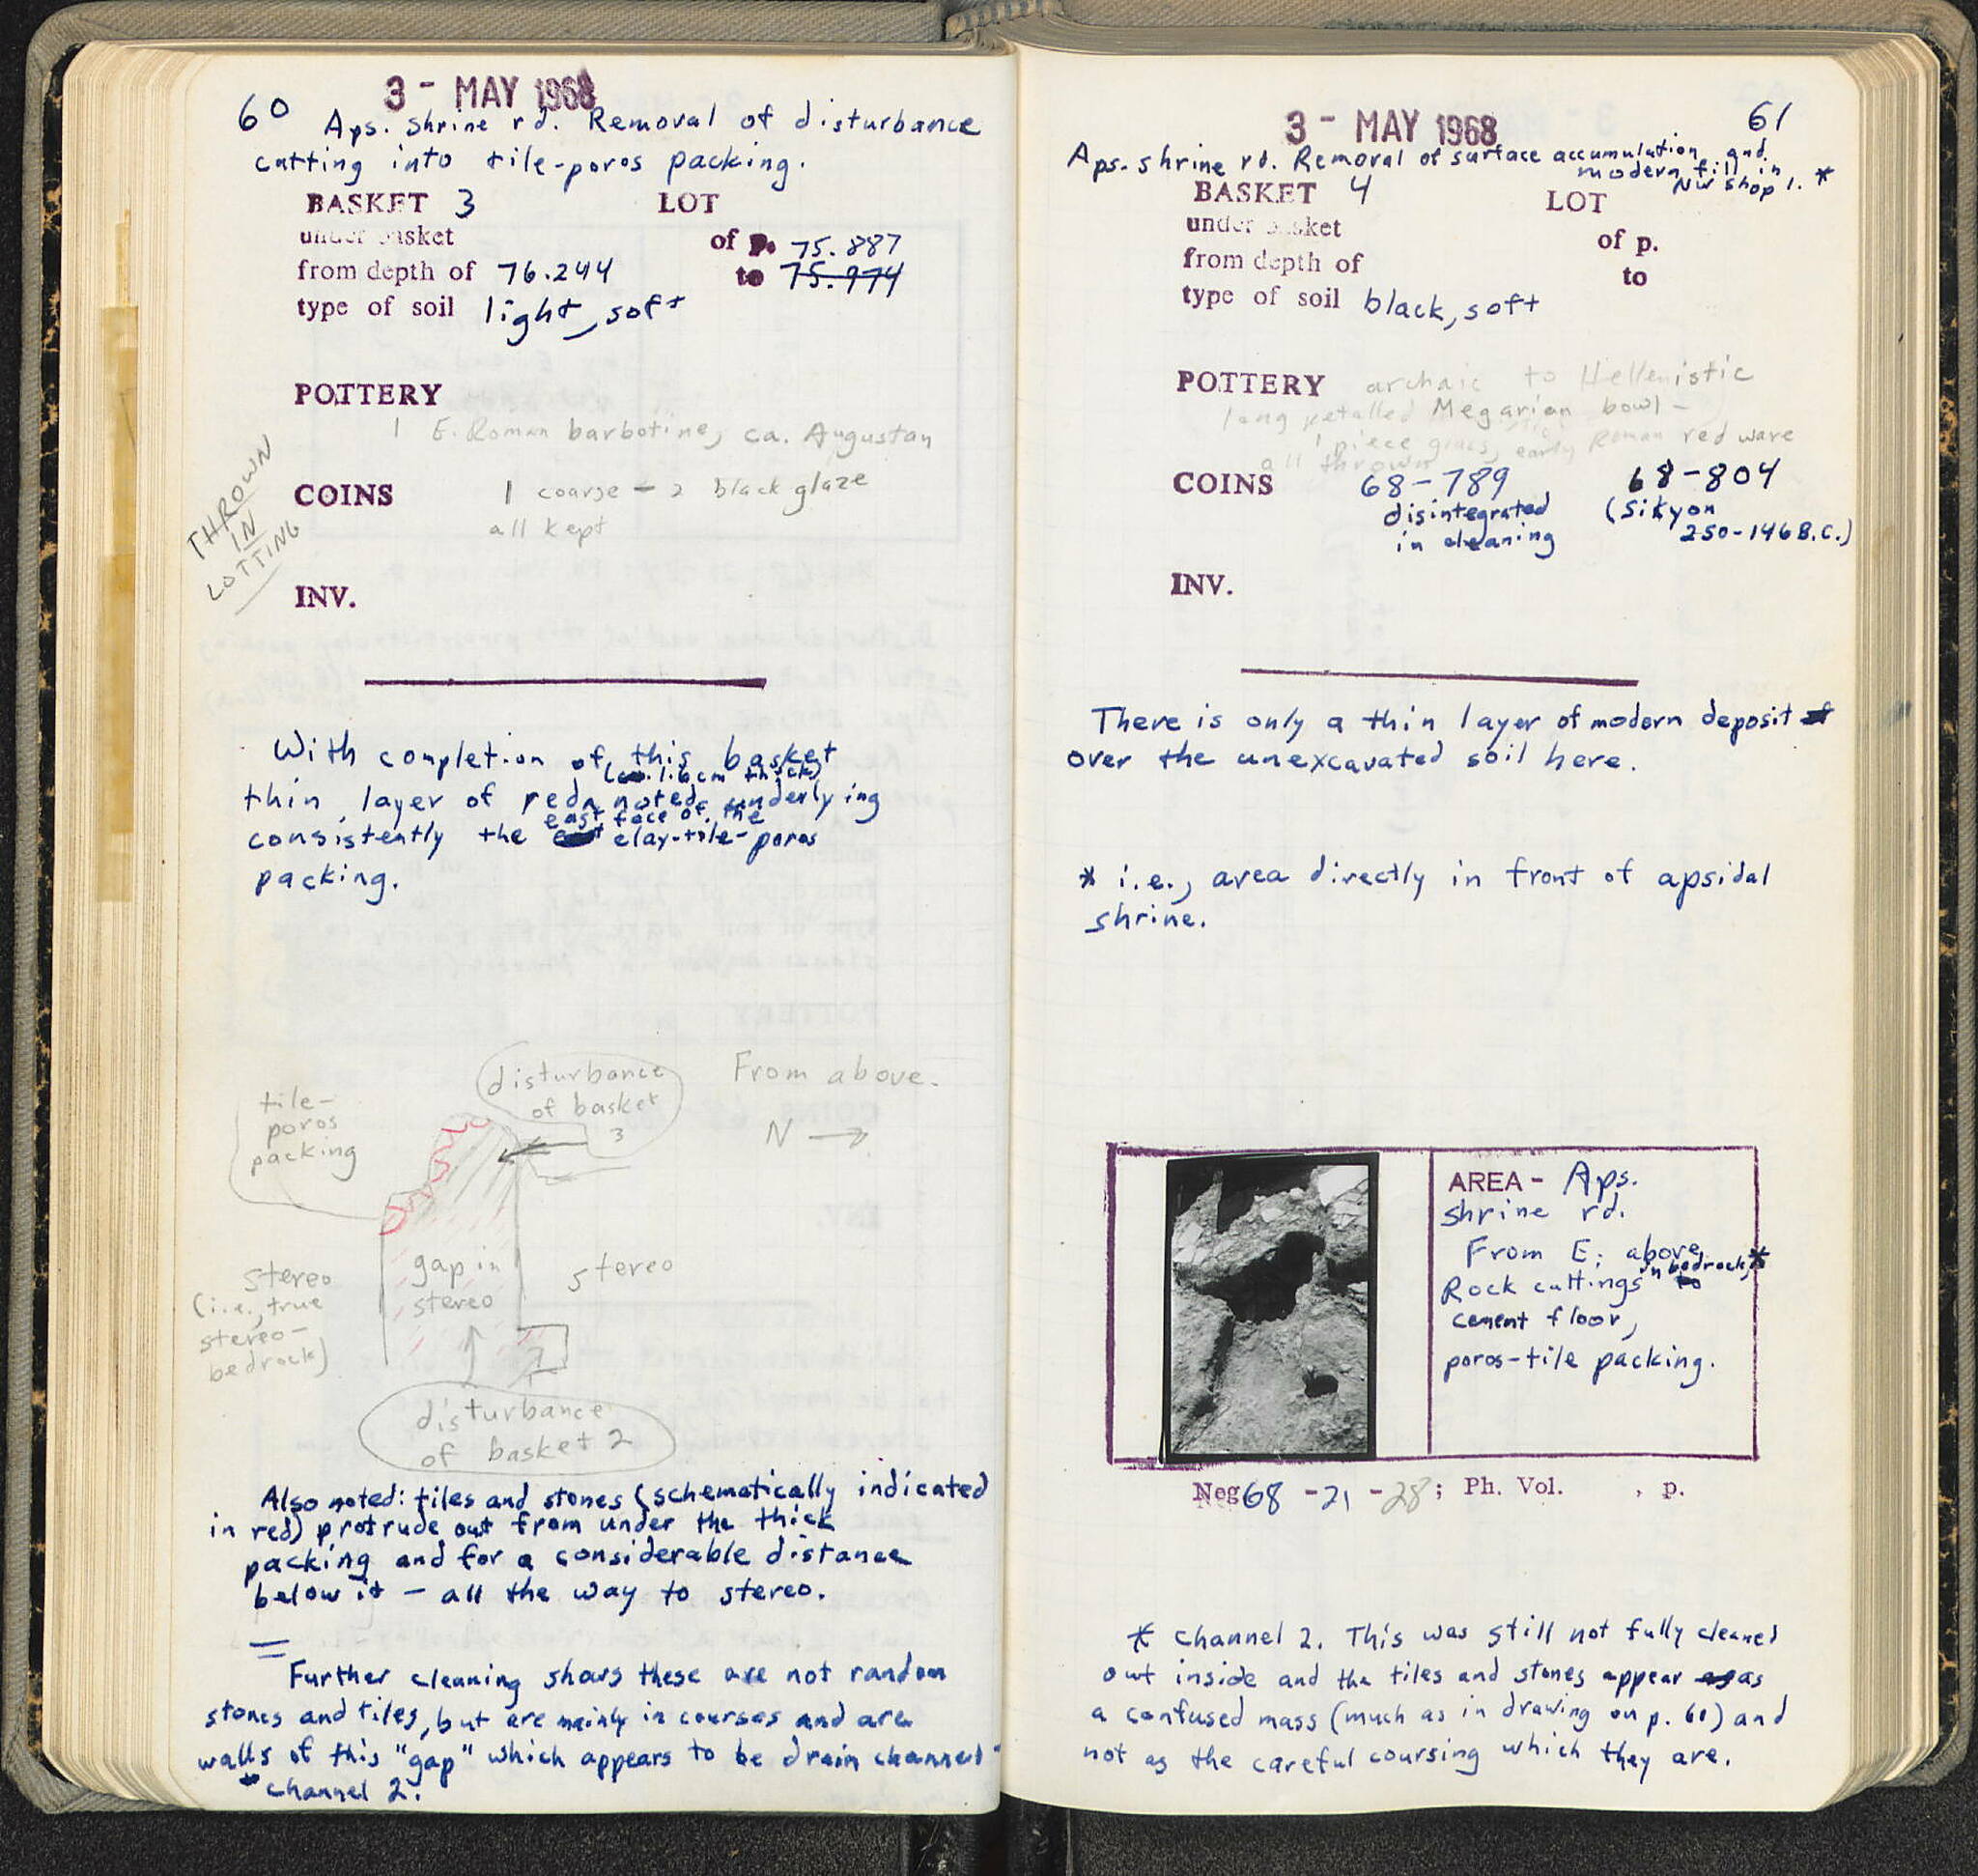 3 - MAY 1968
60 Aps. shrine rd. Removal of disturbance
cutting into tile-poros packing.
BASKET 3 LOT
under basket of p. 75.887
from depth of 76.244 to 75.974
type of soil light, soft
POTTERY
1 E. Roman barbotine, ca. Augustan
COINS 1 coarse - 2 black glaze
all kept
THROWN
IN
LOTTING
INV.
With completion of this basket
(ca. 1.6cm thick)
thin layer of red noted underlying
east face of the
consistently the clay-tile-poros
packing.
disturbance
of basket
3
From above.
N →
tile-
poros
packing
stereo
(i.e., true
stereo-
bedrock)
gap in
stereo
stereo
disturbance
of basket 2
Also noted: tiles and stones (schematically indicated
in red) protrude out from under the thick
packing and for a considerable distance
below it - all the way to stereo.
Further cleaning shows these are not random
stones and tiles, but are mainly in courses and are
walls of this "gap" which appears to be drain channel
channel 2.
3 - MAY 1968
61
Aps. shrine rd. Removal of surface accumulation and
modern fill in
NW shop 1. *
BASKET 4 LOT
under basket of p.
from depth of to
type of soil black, soft
POTTERY archaic to Hellenistic
long petalled Megarian bowl -
1 piece glass, early Roman red ware
all thrown
COINS 68-789 68-804
disintegrated (Sikyon
in cleaning 250-146 B.C.)
INV.
There is only a thin layer of modern deposit
over the unexcavated soil here.
* i.e., area directly in front of apsidal
shrine.
AREA - Aps.
shrine rd.
From E; above
Rock cuttings in bedrock,* to
cement floor,
poros-tile packing.
Neg 68 - 21 - 28; Ph. Vol. , p.
* channel 2. This was still not fully cleaned
out inside and the tiles and stones appear as
a confused mass (much as in drawing on p. 60) and
not as the careful coursing which they are.